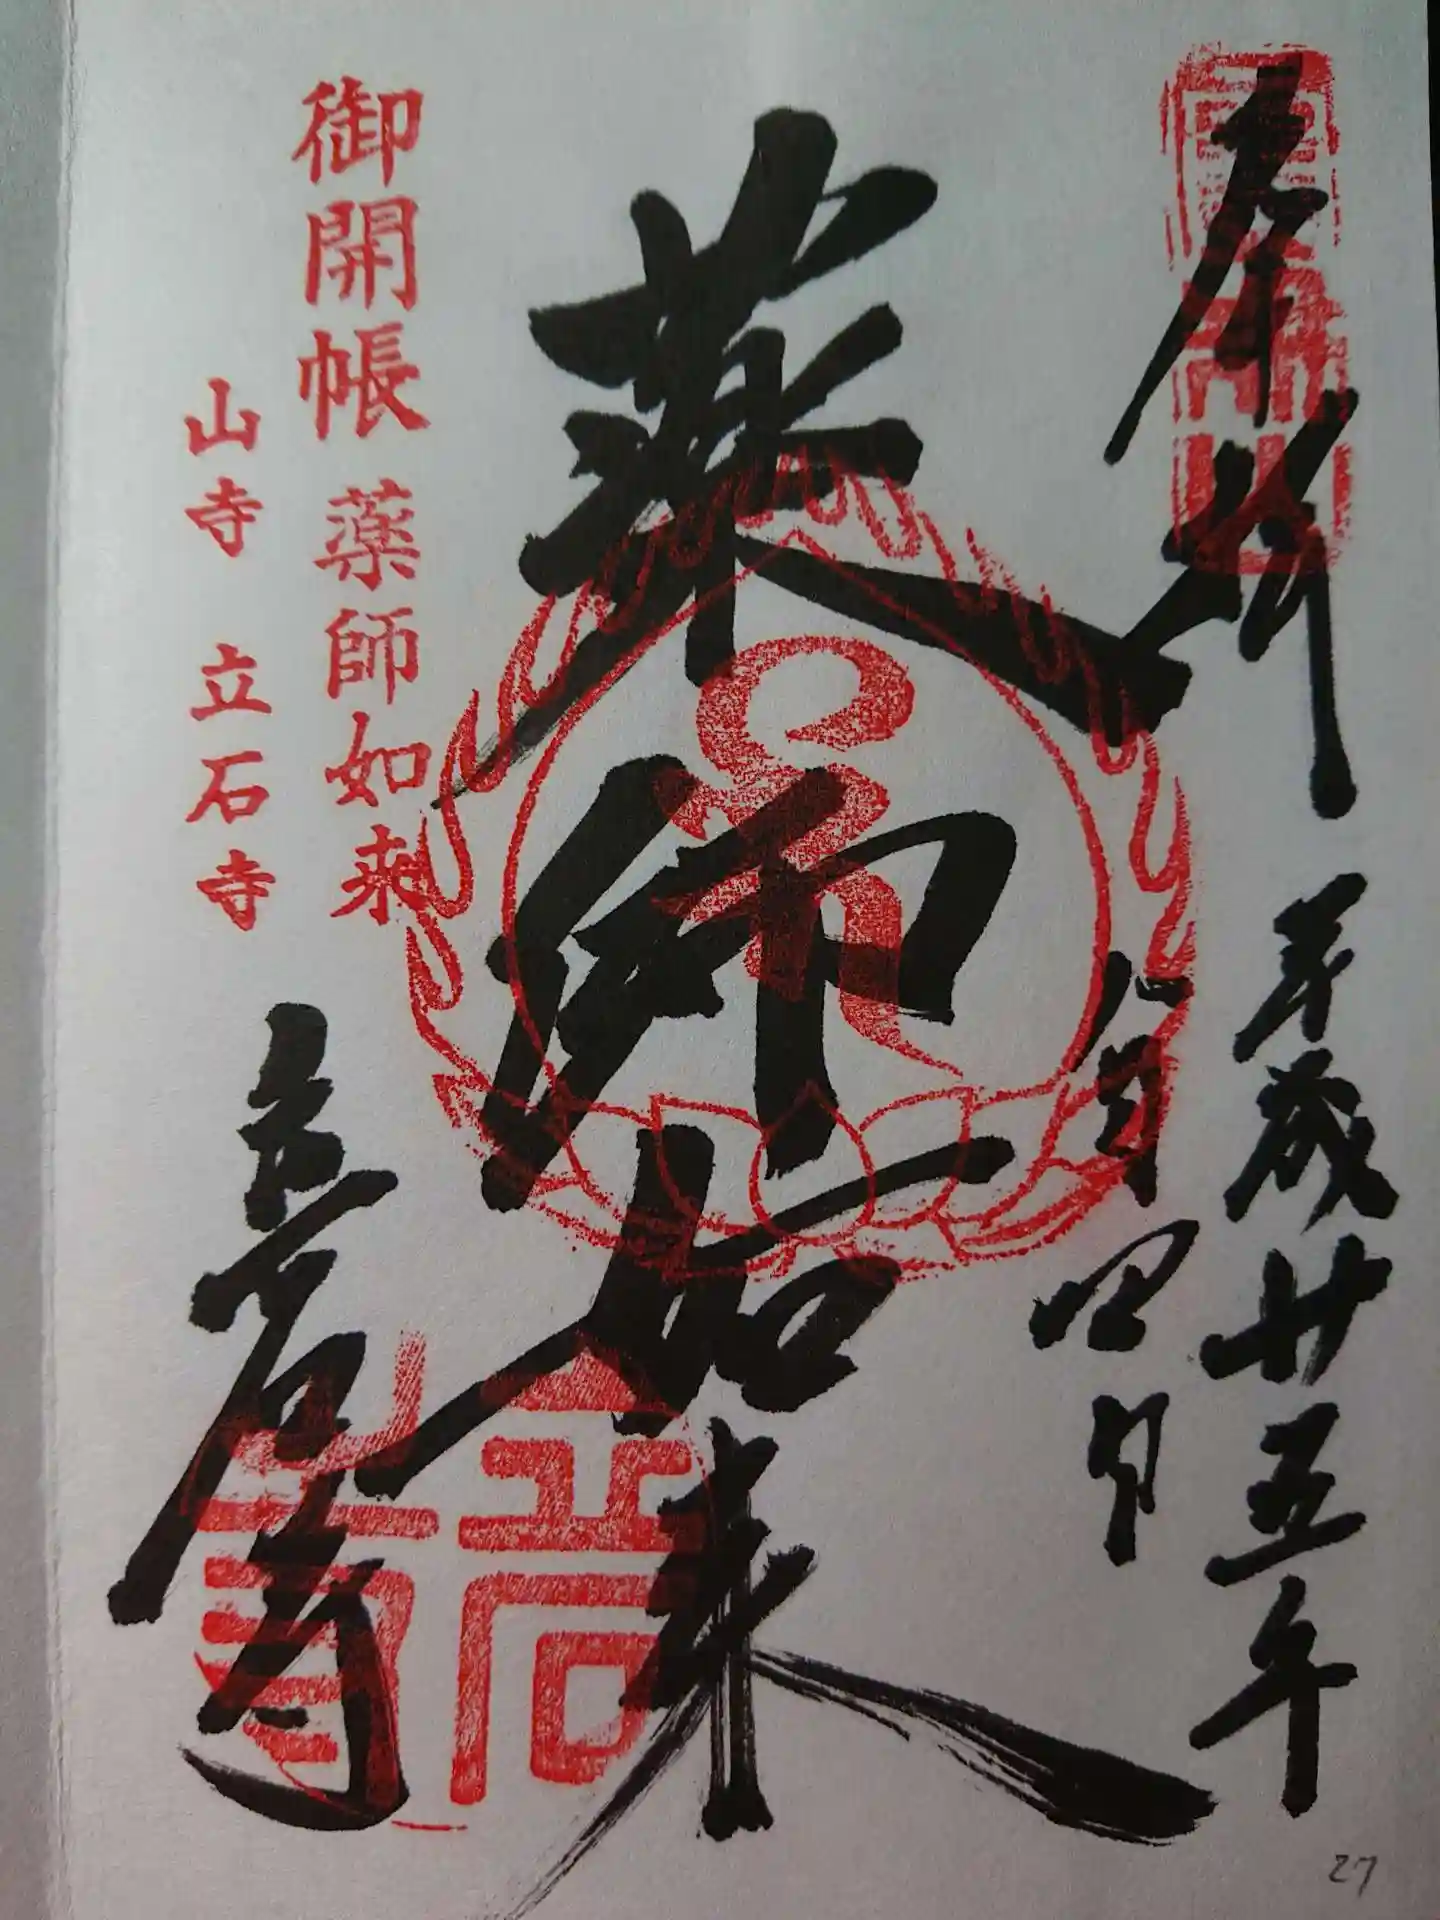 奉拝
平成廿五年
八月四日
薬師如来
御開帳 薬師如来
山寺 立石寺
立石寺
立石寺
27